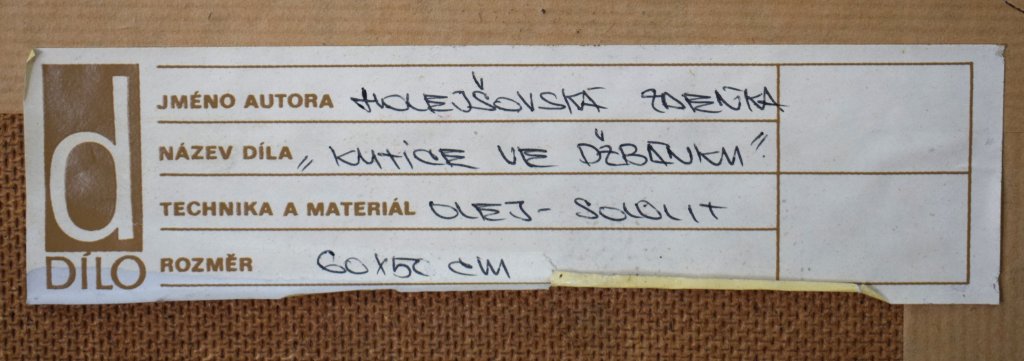 d
DÍLO
JMÉNO AUTORA HOLEJŠOVSKÁ ZDEŇKA
NÁZEV DÍLA „KYTICE VE DŽBÁNKU"
TECHNIKA A MATERIÁL OLEJ - SOLOLIT
ROZMĚR 60X50 CM